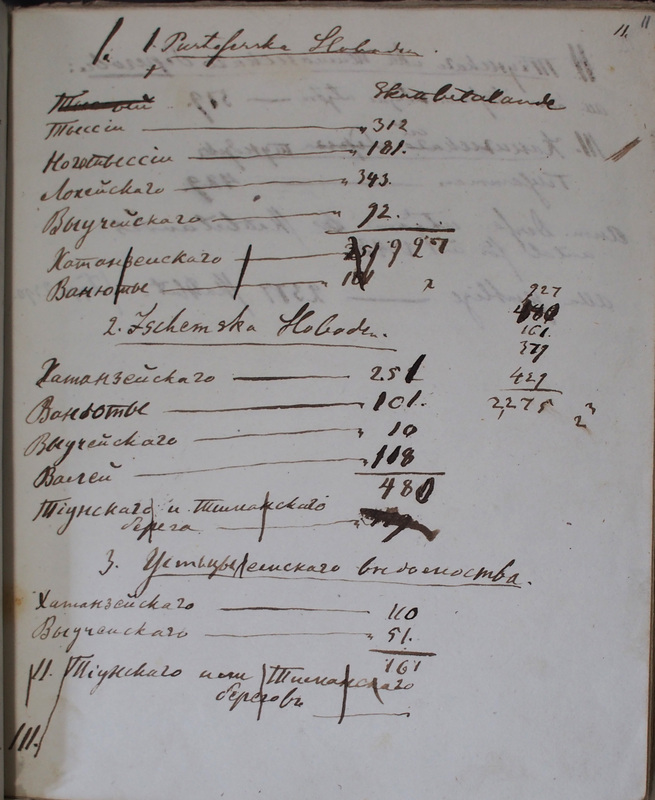 11. 11
I. 1. Pustoserska Sloboden.
Skattbetalande
Тысыи — „ 312
Ноготысіи — „ 181.
Лохейскаго — „ 343.
Выучейскаго — „ 92.
Хатанзейскаго — 251 927
Ванюты — 101
2. Ischemska Sloboden.
Хатанзейскаго — 251
Ванюты — „ 101.
Выучейскаго — „ 10
Валей — „ 118
480
Тіунскаго и Тиманскаго
берега — „
3. Устьцылемскаго вѣдомства.
Хатанзейскаго — 110
Выучейскаго — „ 51.
161
II. Тіунскаго или Тиманскаго
береговъ —
III.
927
480
161.
379
429
2,275